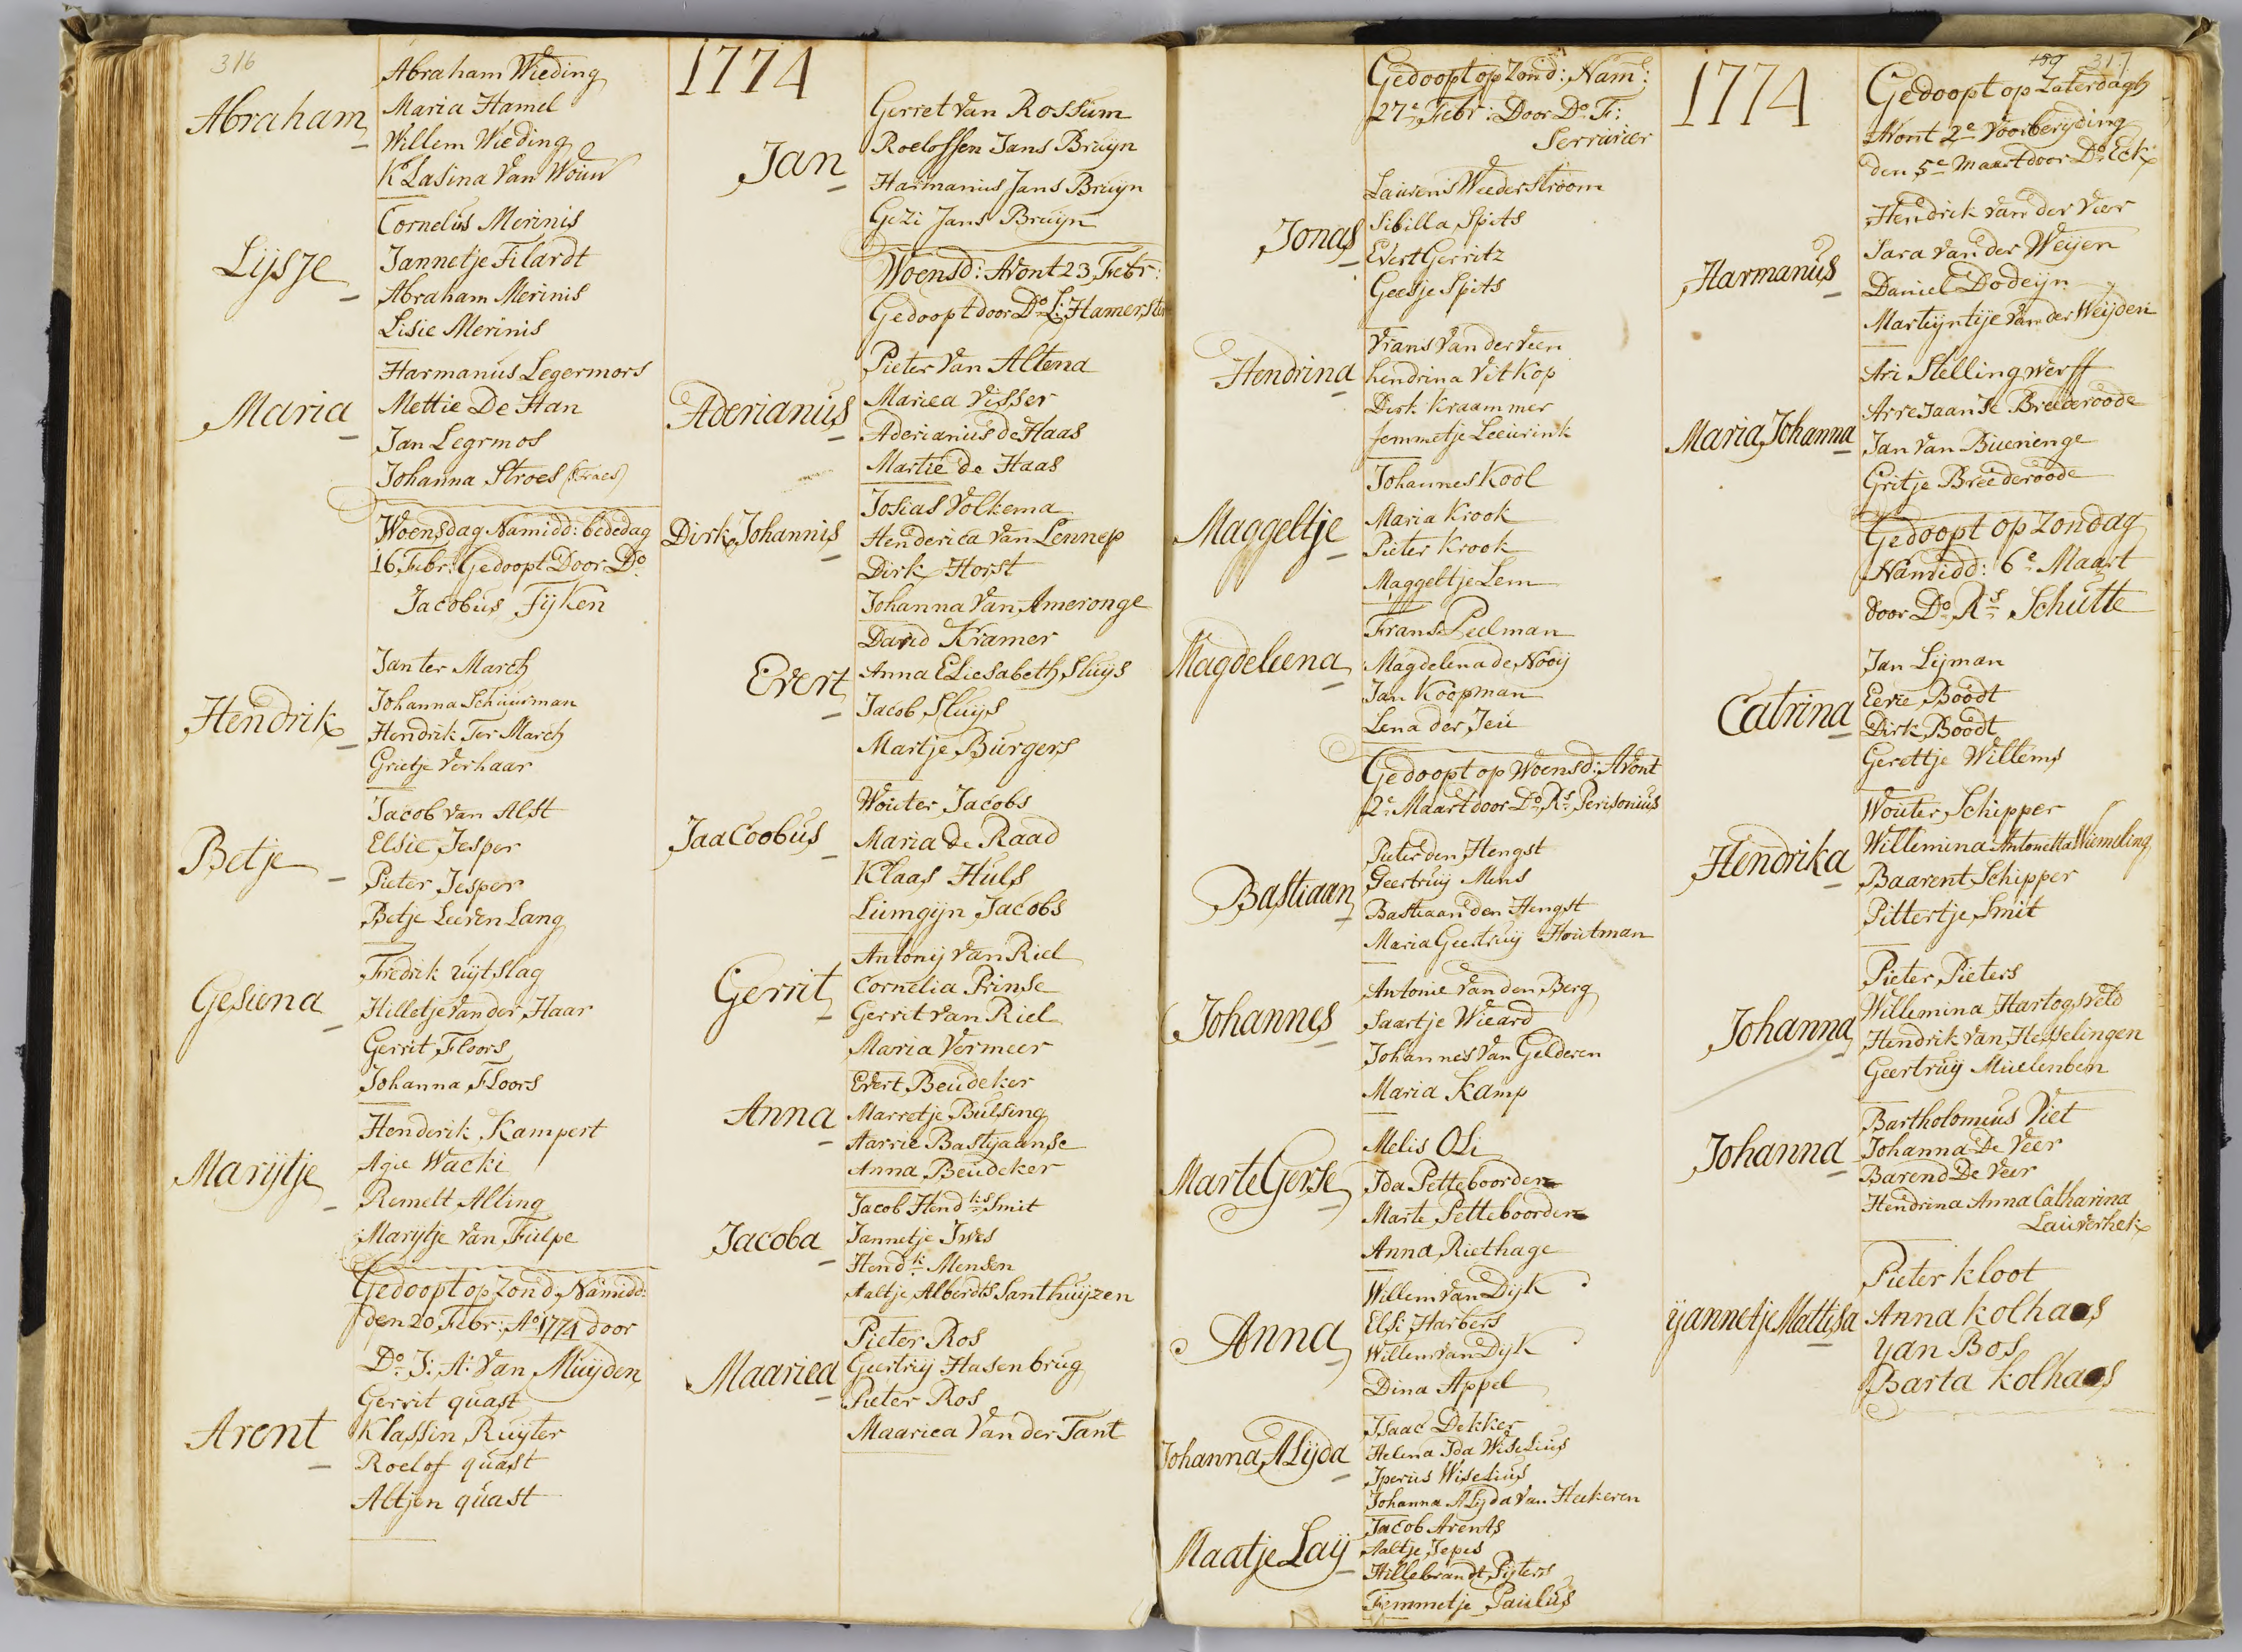 316
Abraham
Abraham Wieding
Maria Hamel
Willem Wieding
KLasina Van Wouw
Lijsje
Cornelis Merinis
Jannetje Filardt
Abraham Merinis
Lisie Merinis
Maria
Harmanus Legermors
Mettie De Han
Jan Legrmos
Johanna Stroes (straes)
Woensdag Namidd: bededag
16 Febr: Gedoopt Door Do
Jacobus Tyken
Hendrik
Jan ter March
Johanna Schuurman
Hendrik Ter March
Grietje Verhaar
Betje
Jacob van Alst
Elsie Jesper
Pieter Jesper
Betje Leeven Lang
Gesiena
Fredrik uijtslag
Hilletje van der Haar
Gerrit Floors
Johanna Floors
Marijtje
Henderik Kampert
Agie Wacki
Remelt Alting
Marijtje van Fulpe
Gedoopt op Zond Namidd:
den 20 Febr: Ao 1774 door
Do J: A: Van Muijden
Arent
Gerrit quast
Klassin Ruijter
Roelof quast
Altjen quast
1774
Jan
Gerret van Rossum
Roeloffen Jans Bruijn
Harmanius Jans Bruijn
Gezi Jans Bruijn
Woensd: Avont 23 Febr:
Gedoopt door Do L: Hamerster
Aderianus
Pieter Van Altena
Mariea Visser
Aderianus de Haas
Martie de Haas
Dirk Johannis
Josias Volkema
Henderica van Lennep
Dirk Horst
Johanna Van Ameronge
Evert
David Kramer
Anna ELiesabeth Sluijs
Jacob Sluijs
Martje Burgers
JaaCoobus
Wouter Jacobs
Maria de Raad
Klaas Huls
Lumgijn Jacobs
Gerrit
Antonij van Riel
Cornelia Prinse
Gerrit van Riel
Maria Vermeer
Anna
Evert Beudeker
Marretje Bulsing
Aarrie Bastjaanse
Anna Beudeker
Jacoba
Jacob Hendks Smit
Jannetje Ives
Hendk Mensen
Aaltje Alberdts Santhuijzen
Maariea
Pieter Ros
Geertrij Hasenbrug
Pieter Ros
Maariea Van der Tant
Gedoopt op Zond: Nam:
27e Febr: Door Do F:
Serrurier
Jonas
Laurens Weederstroom
Sibilla Spits
Evert Gerritz
Geesje Spits
Hendrina
Vrans Van der Veen
hendrina Vitkop
Dirk Kraammer
femmetje Leeurink
Maggeltje
Johannes Kool
Maria Krook
Pieter Krook
Maggeltje Lem
Magdeleena
Frans Peelman
Magdelena de Nooij
Jan Koopman
Lena der Jeu
Gedoopt op Woensd: Avont
2e Maart door Do Rs Perisonius
Bastiaan
Pieter den Hengst
Geertruij Mens
Bastiaan den Hengst
Maria Geertruij Houtman
Johannes
Antonie van den Berg
Saartje Wieard
Johannes Van Gelderen
Maria Kamp
Marte Gerse
Melis OLi
Ida Petteboorden
Marte Petteboorden
Anna Riethage
Anna
Willem van Dijk
Elsi Harbers
Willem van Dyk
Dina Appel
Johanna ALijda
Isaac Dekker
Helena Ida WiseLius
Iperus WiseLius
Johanna ALyda Van Heekeren
Maatje Laij
Jacob Arents
Aaltje Jepes
Hillebrandt Pijters
Femmetje Paulus
1774
159 317
Gedoopt op Zaterdagh
Avont 2e Voorberyding
den 5e Maart door Do Eck
Harmanus
Hendrik van der Veer
Sara van der Weijen
Daniel Dodeijn
Martyntije van der Weijden
Maria Johanna
Ari Stellingwerff
Arrejaanse Breederoode
Jan Van Buerienge
Gritje Breederoode
Gedoopt op zondag
Namidd: 6e Maart
door Do Rs Schutte
Catrina
Jan Lijman
Eerie Boodt
Dirk Boodt
Gerettje Willems
Hendrika
Wouter Schipper
Willemina Antonetta Wiemeling
Baarent Schipper
Pittertje Smit
Johanna
Pieter Pieters
Willemina Hartogsveld
Hendrik van Hesselingen
Geertruij Muelenben
Johanna
Bartholomeus Viet
Johanna De Veer
Barend De Veer
Hendrina Anna Catharina
Lauverhek
yannetje Mattisa
Pieter kloot
Anna kolhaas
yan Bos
Barta kolhaas